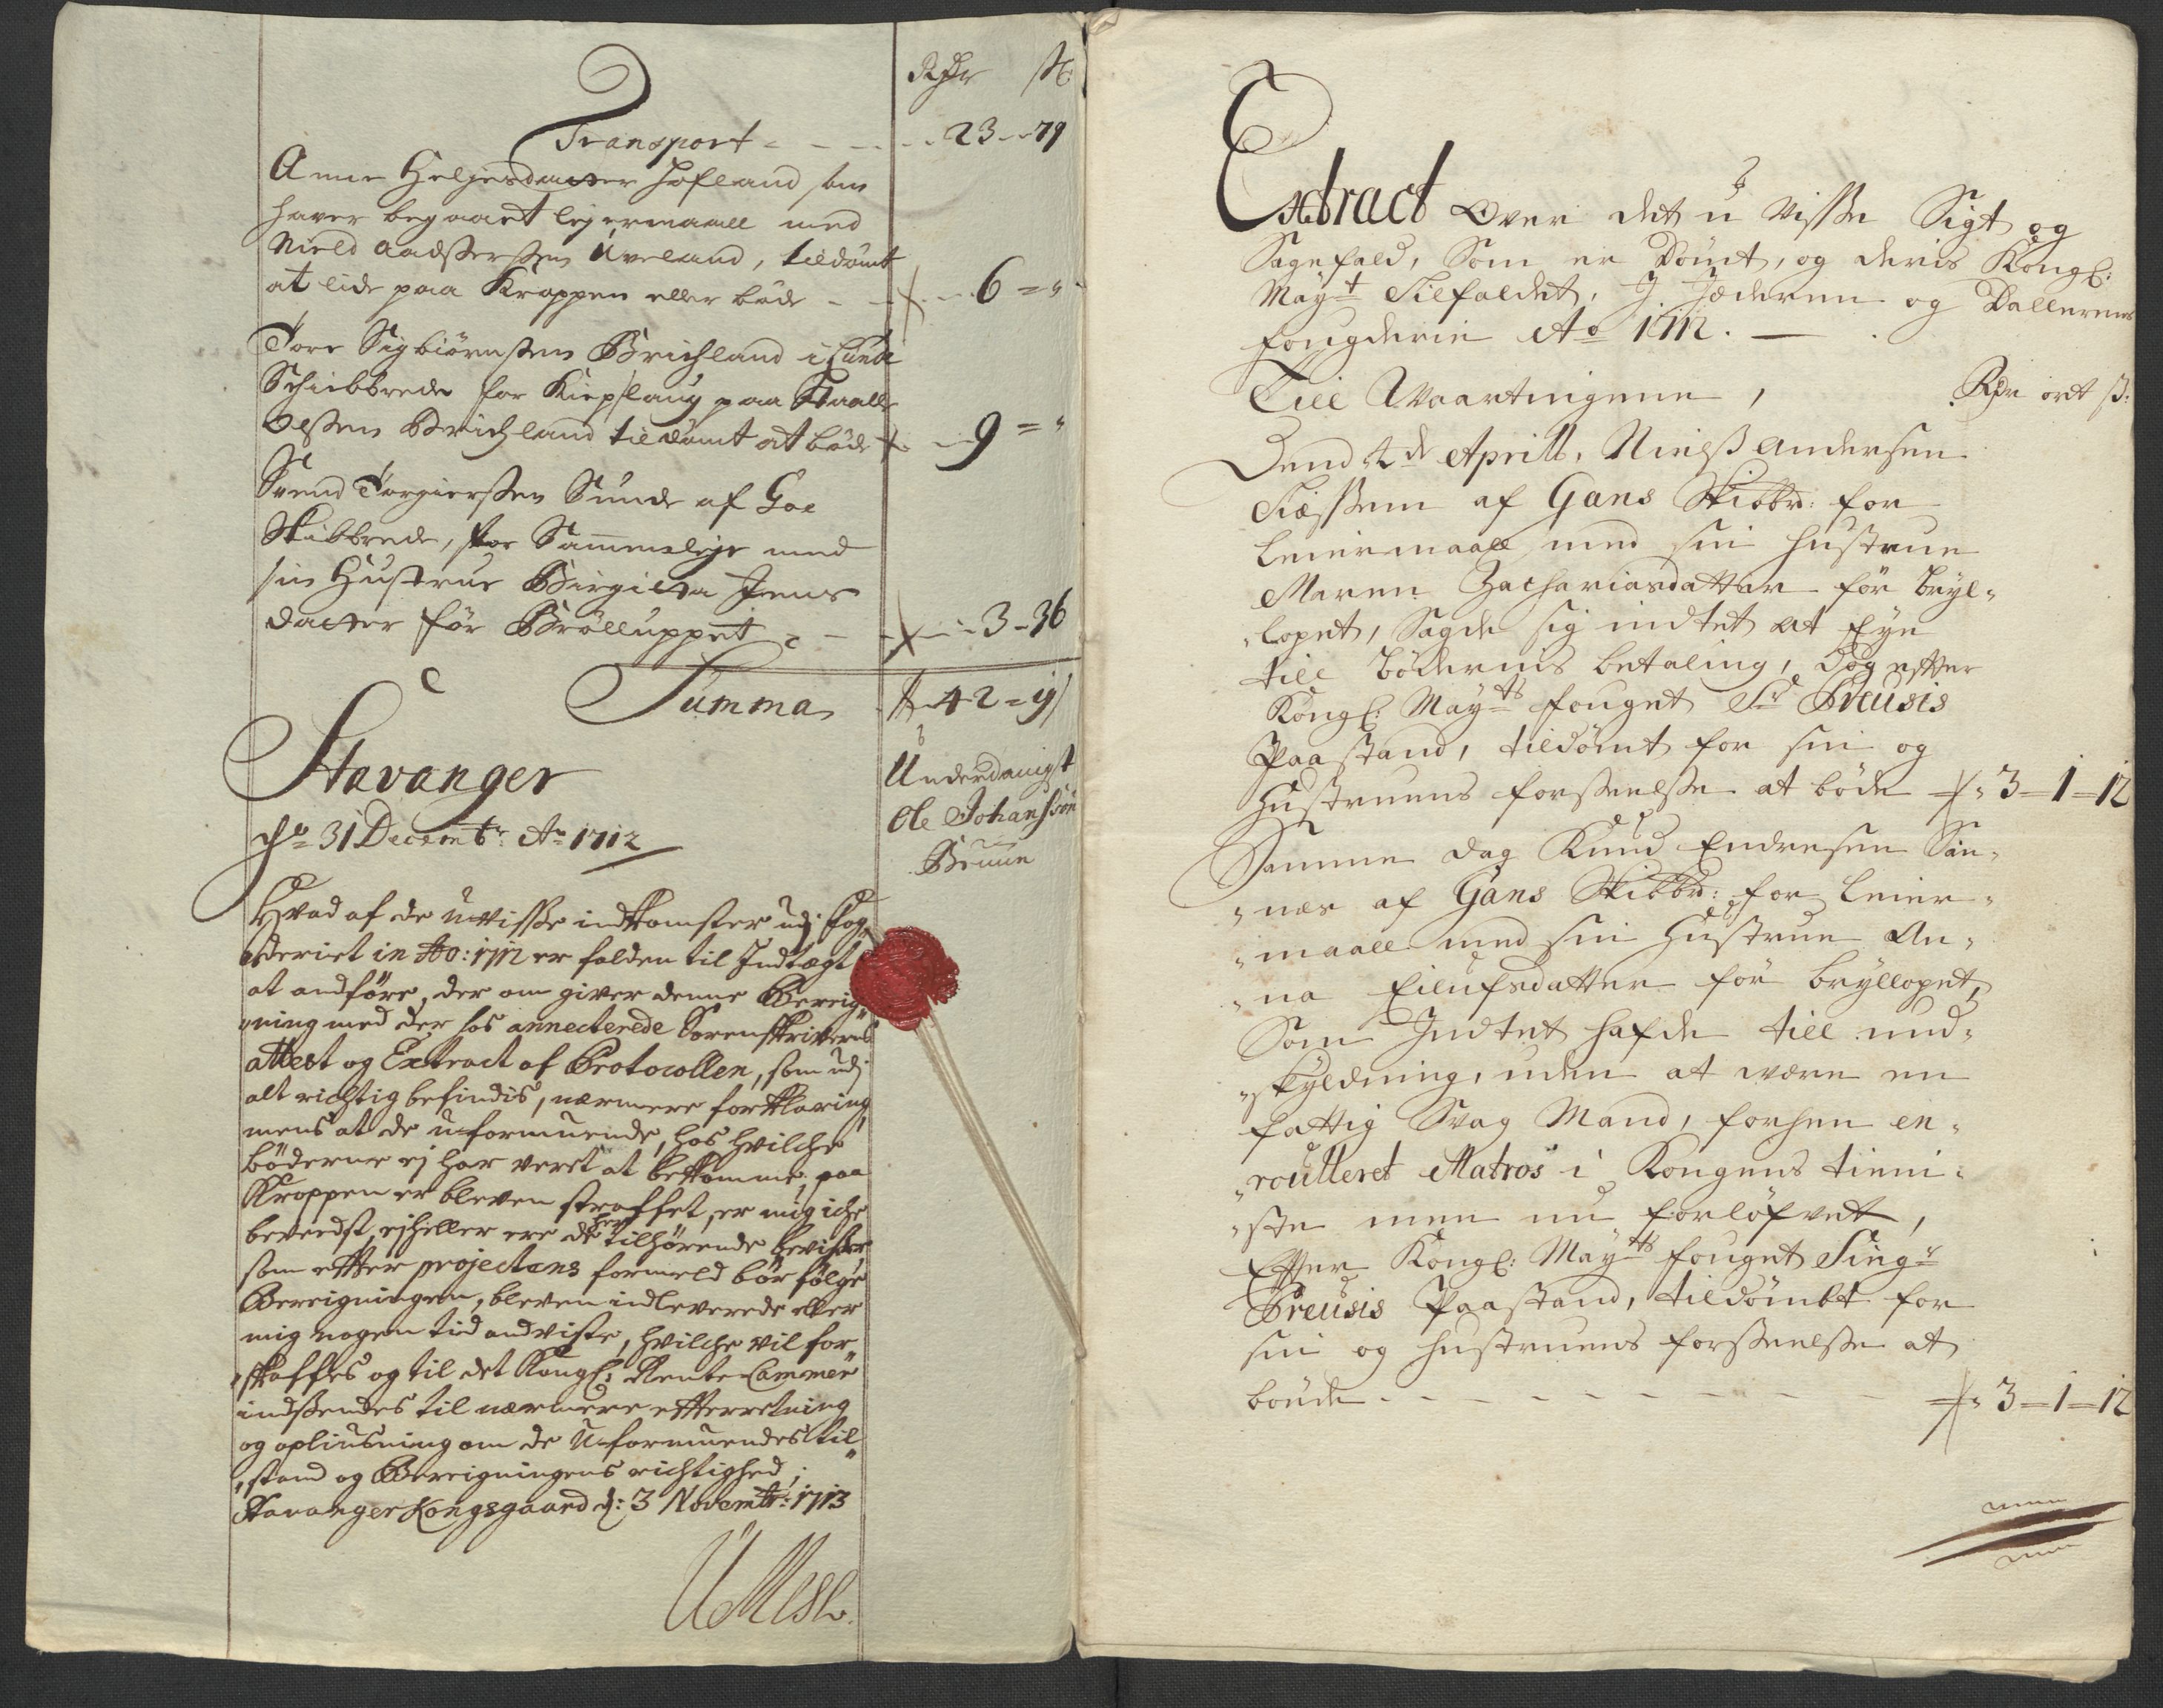 Rdr ß
Transport - - - - 23 - 79
Anne Helgesdatter Hofland som
hafver begaaet leyermaall med
Niels Aadssersøn Aveland, tildømt
at lide paa Kroppen eller bøde - - 6 = "
Tore Sigbiørnsøn Birchland i Lunde
Schibbrede for
Olsøn Birchland tildømt at bøde - 9 = "
Svend Torgiersøn Sunde af Goe
Skibbrede, for Sammenleye med
sin Hustrue Birgitta Jens
datter før Brølluppet - - - 3 - 36
Summa 42 = 19
Stavanger
d: 31 Decembr: Ao 1712
Underdanigst
Ole Johanssøn
Bruun
Hvad af de u-visse indkomster udj Fog„
deriet in Ao: 1712 er falden til Indtægt
at andføre, der om giver denne Bereig„
„ning med der hos annecterede Sorenskriverens
attest og Extract af Protocollen, som udj
alt richtig befindis, nærmere forklaring
mens at de u-formuende, hos hvilche
bøderne ej har veret at bekomme, paa
Kroppen er bleven straffet, er mig iche
bevidst, ejheller ere de her tilhørende bevister
som efter projectens formeld bør følge
Bereigningen, bleven indleverede eller
mig nogen tid andviste, hvilche vil for„
„skaffes og til det Kongl: Rente-Cammer
indsendes til nærmere efterretning
og opliusning om de U-formuendes til„
„stand og Bereigningens richtighed,
Stavanger Kongsgaard d: 3 Novembr: 1713
Extract Over det u Visse Sigt og
Sagefald, Som er Dömt, og deris Kongl:
Mayt Tilfaldet, J Jæderen og Dallernes
fougderie Ao 1712.
Till Waartingene, Rdr ort ß:
Dend 4de Aprill, Nielß Andersen
af Gans Skibbr: for
Leiermaall med sin hustrue
Maren Zachariasdatter för bryl„
„lopet, Sagde sig indtet at Eye
till bödernis betaling, dog efter
Kongl: Mayts fouget Sr Preusis
Paastand, tildömt for sin og
Hustruens forseelsse at böde - 3 - 1 - 12
Samme dag Knud Endresen San„
„nes af Gans Skibbr: for Leier„
„maall med sin Hustrue An„
„na Eilufsdatter för bryllopet,
Som Indtet hafde till und„
„skyldning, uden at være en
fattig Svag Mand, forhen en„
„roulleret Matros i Kongens tieni„
„ste men nu forløfvet,
Efter Kongl: Mayts fouget Singr
Preusis Paastand, tildömbt for
sin og hustruens forseelsse at
bøude - - - - - - - - 3 - 1 - 12